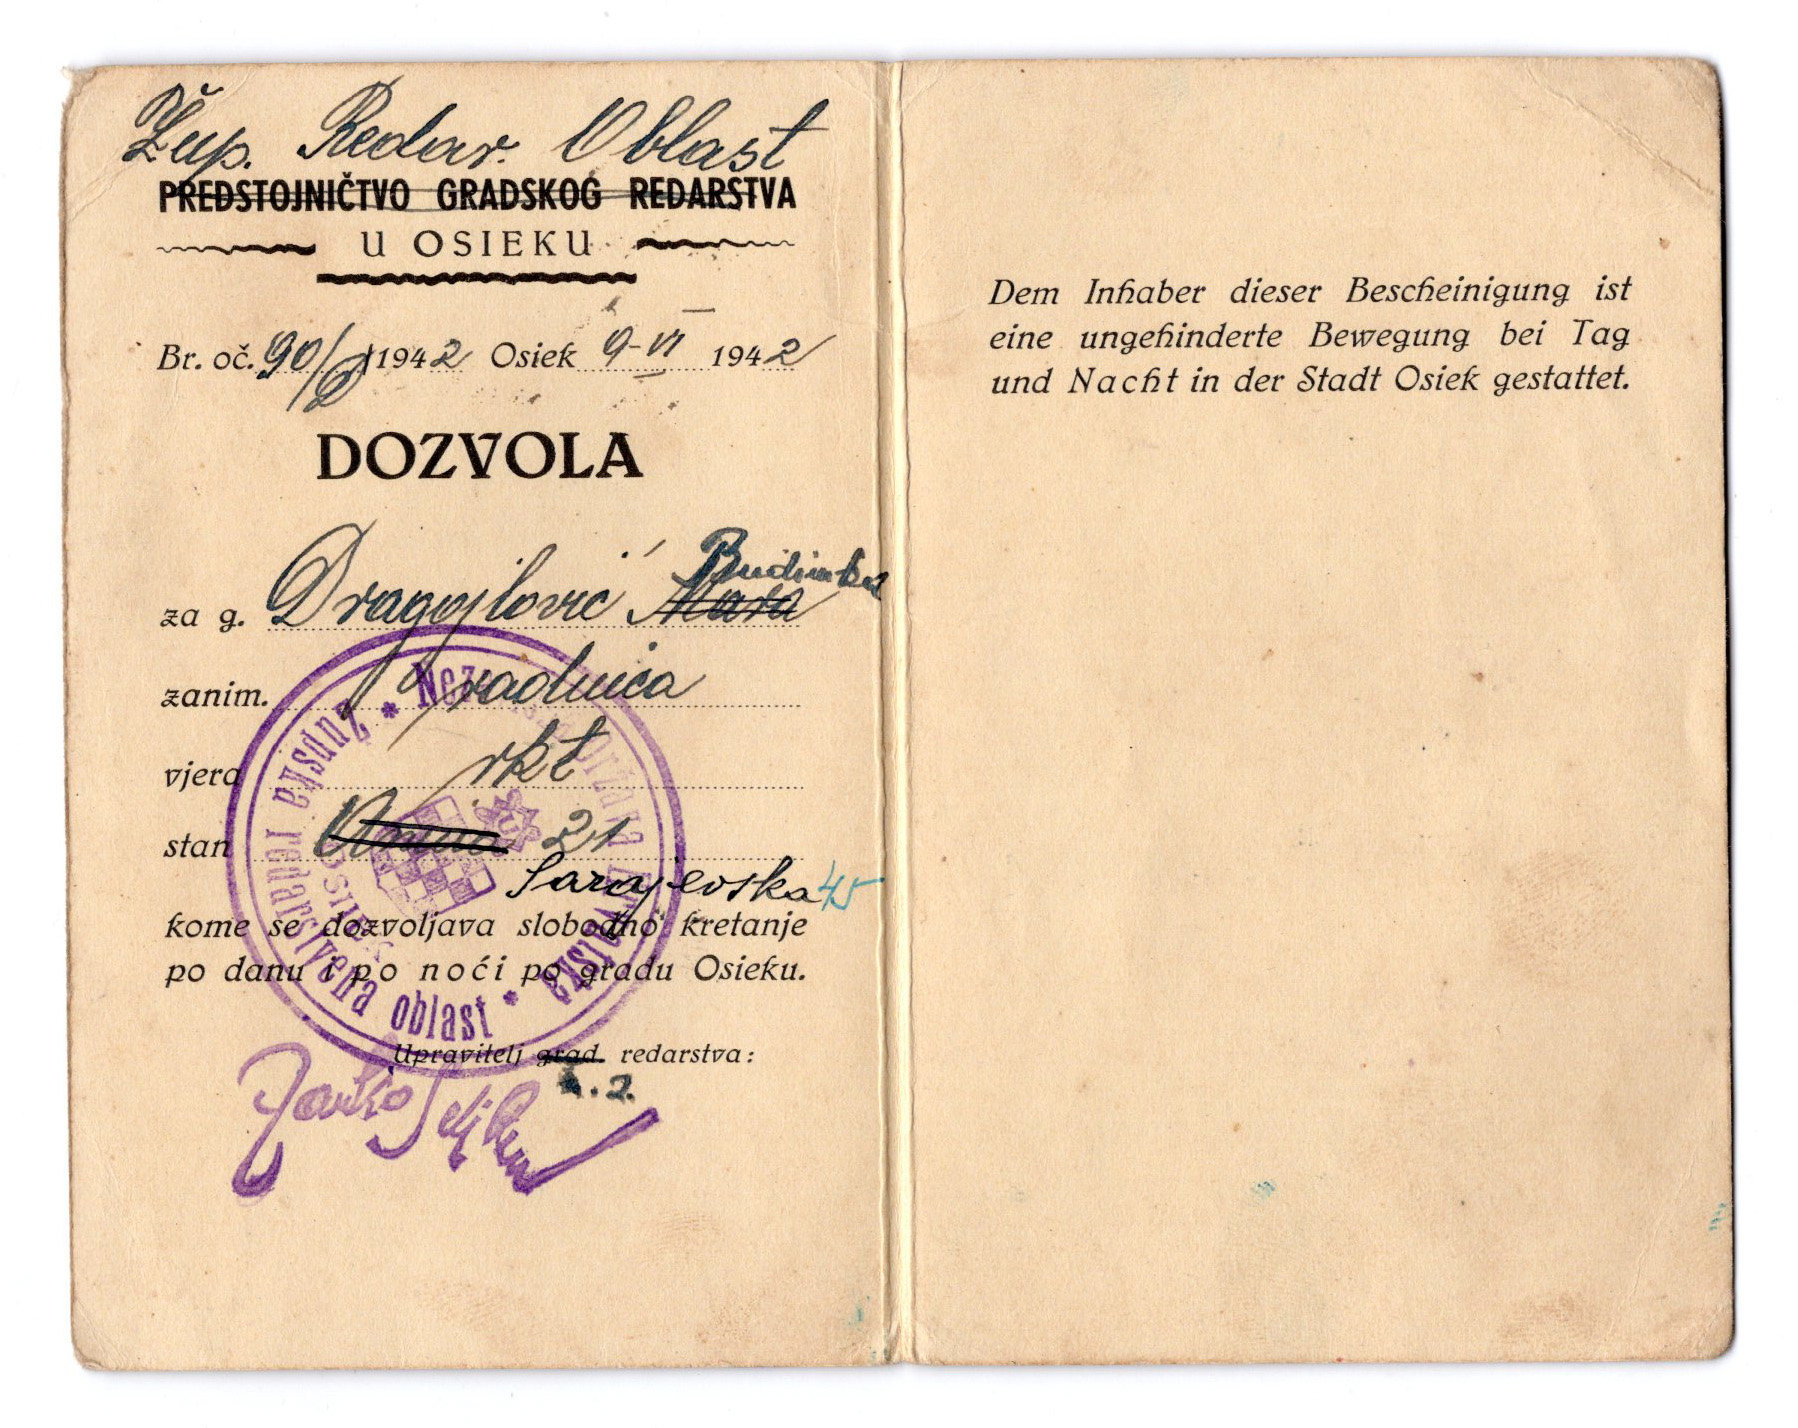 Žup. Redar. Oblast
PREDSTOJNIČTVO GRADSKOG REDARSTVA
U OSIEKU
Br. oč. 90/D 1942 Osiek 9-VI 1942
DOZVOLA
Budimka
za g. Dragojlović Mara
zanim. radnica
vjera rkt
stan 21
Sarajevska 45
kome se dozvoljava slobodno kretanje
po danu i po noći po gradu Osieku.
Upravitelj grad. redarstva:
Nezavisna Država Hrvatska
Župska redarstvena oblast
OSIEK
U
Dem Inhaber dieser Bescheinigung ist
eine ungehinderte Bewegung bei Tag
und Nacht in der Stadt Osiek gestattet.